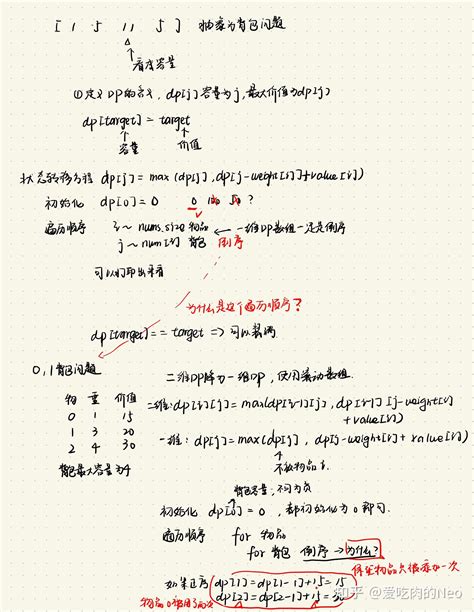 [ 1 5 11 5 ] 抽象为背包问题
看成容量
①定义DP的含义, dp[j]容量为j,最大价值为dp[j]
dp[target] = target
容量 价值
状态转移方程 dp[j] = max (dp[j], dp[j-weight[i]]+value[i])
初始化 dp[0] = 0 0 100 50 ?
遍历顺序 i ~ nums.size 物品 ← 一维DP数组一定是倒序
j ~ num[i] 背包 倒序
可以打印出来看
为什么是这个遍历顺序?
dp[target] == target => 可以装满
0,1背包问题
二维DP降为一维DP, 使用滚动数组.
物 重 价值
0 1 15
1 3 20
2 4 30
背包最大容量为4
二维: dp[i][j] = max(dp[i-1][j], dp[i-1][j-weight[i]]
+value[i])
一维: dp[j] = max(dp[j], dp[j-weight[i]]+value[i])
不放物品i.
背包容量,不可为负
初始化 dp[0] = 0 , 都初始化为0即可.
遍历顺序 for 物品
for 背包 倒序 → 为什么?
保证物品只被添加一次
如果正序 dp[1] = dp[1-1]+15 = 15
dp[2] = dp[2-1]+15 = 30
物品0被用了两次
知乎 @爱吃肉的Neo